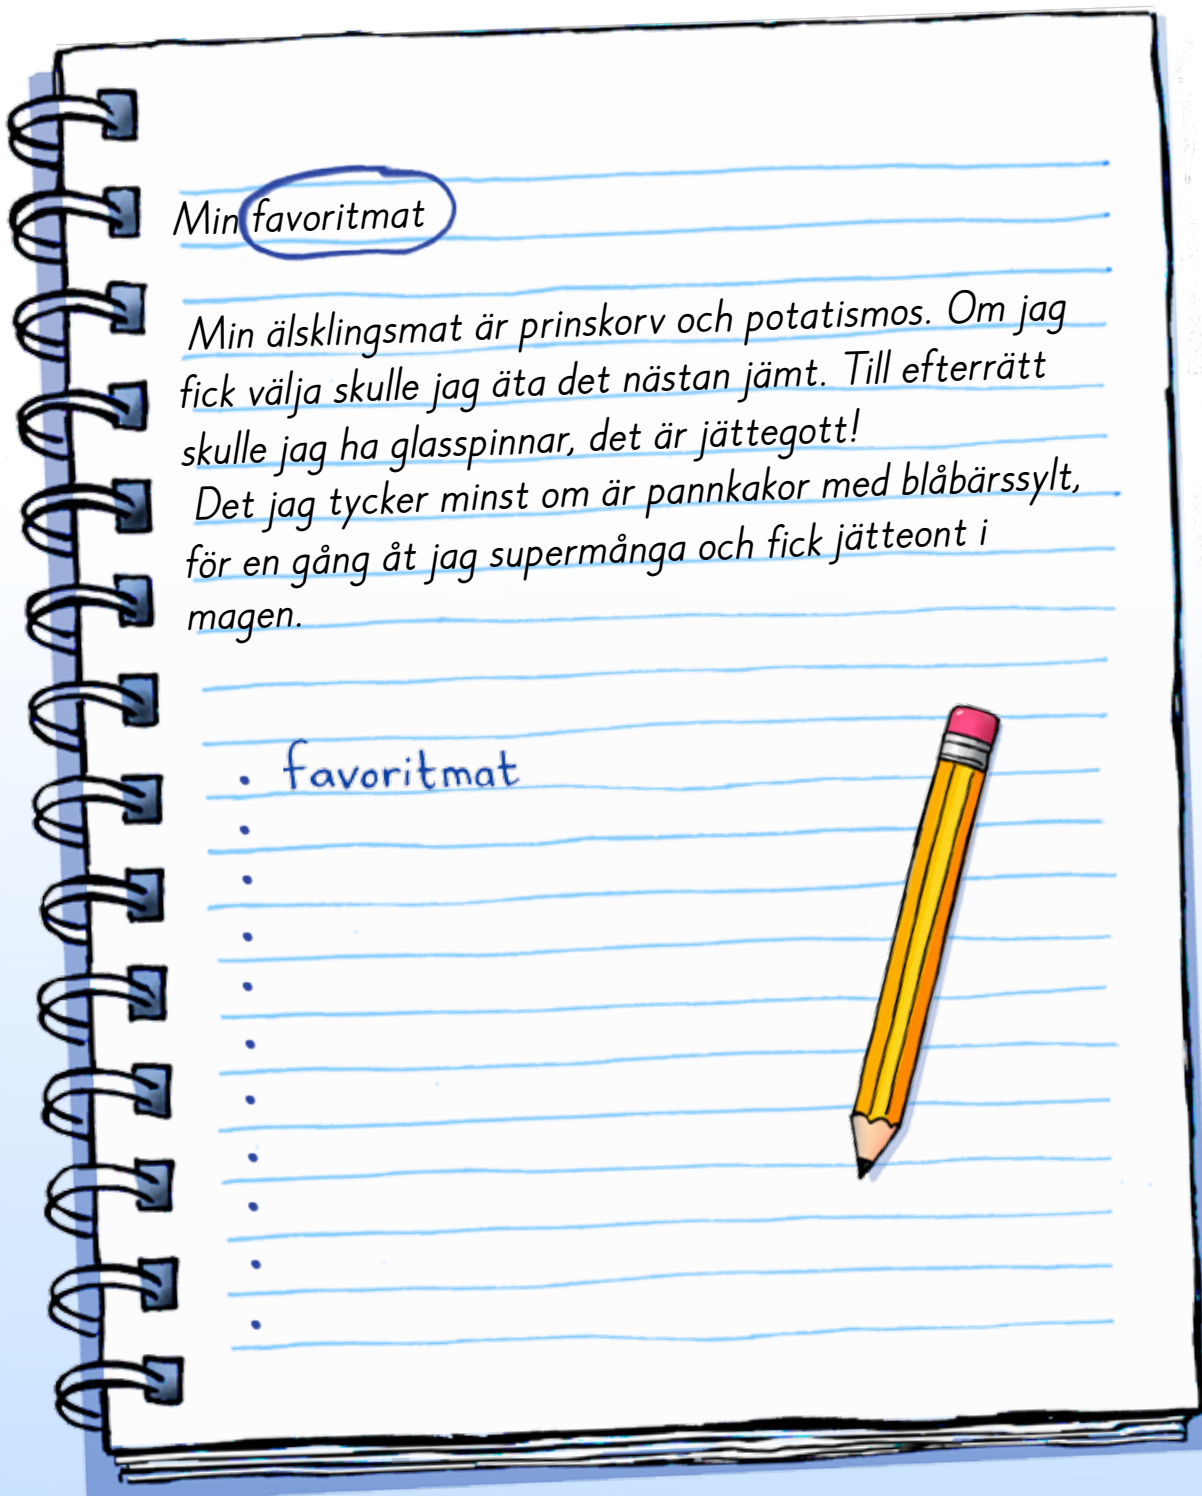 Min favoritmat
Min älsklingsmat är prinskorv och potatismos. Om jag
fick välja skulle jag äta det nästan jämt. Till efterrätt
skulle jag ha glasspinnar, det är jättegott!
Det jag tycker minst om är pannkakor med blåbärssylt,
för en gång åt jag supermånga och fick jätteont i
magen.
• favoritmat
•
•
•
•
•
•
•
•
•
•